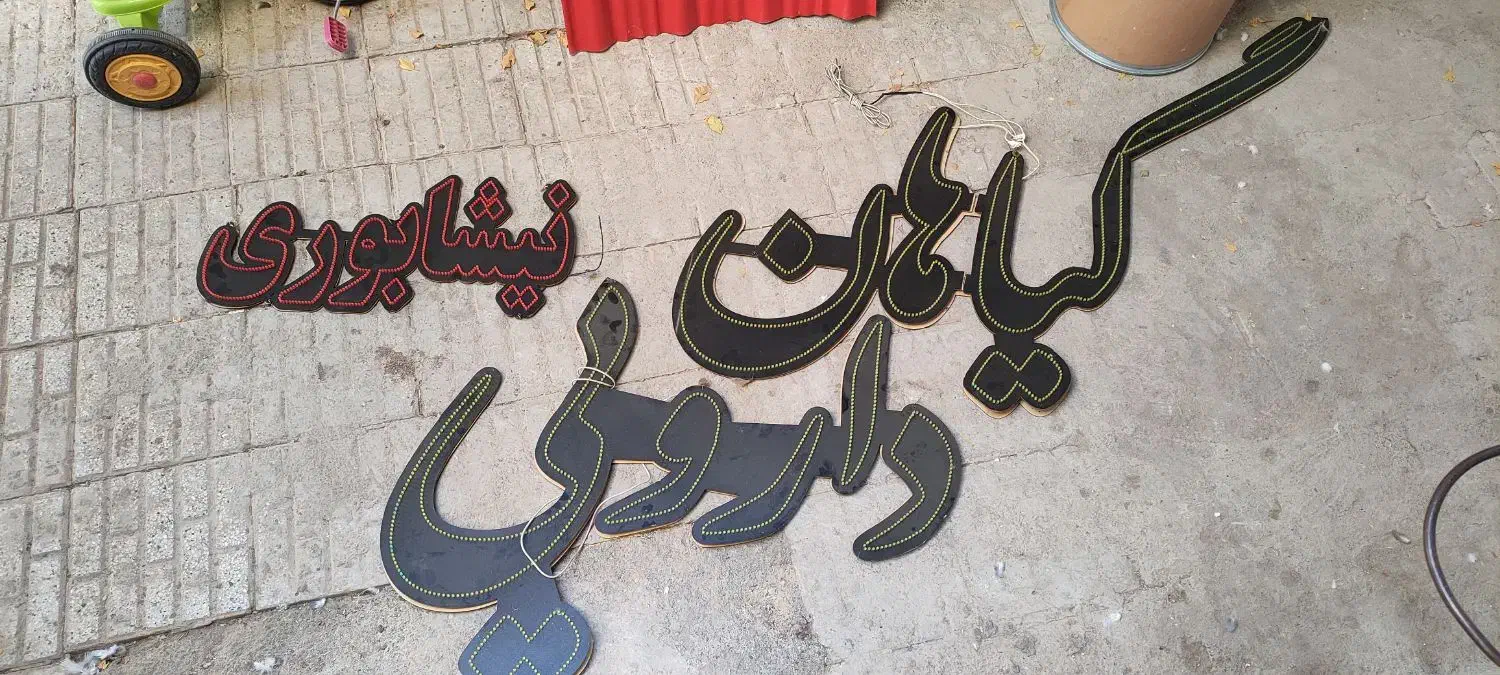 گیاهان
دارویی
نیشابوری